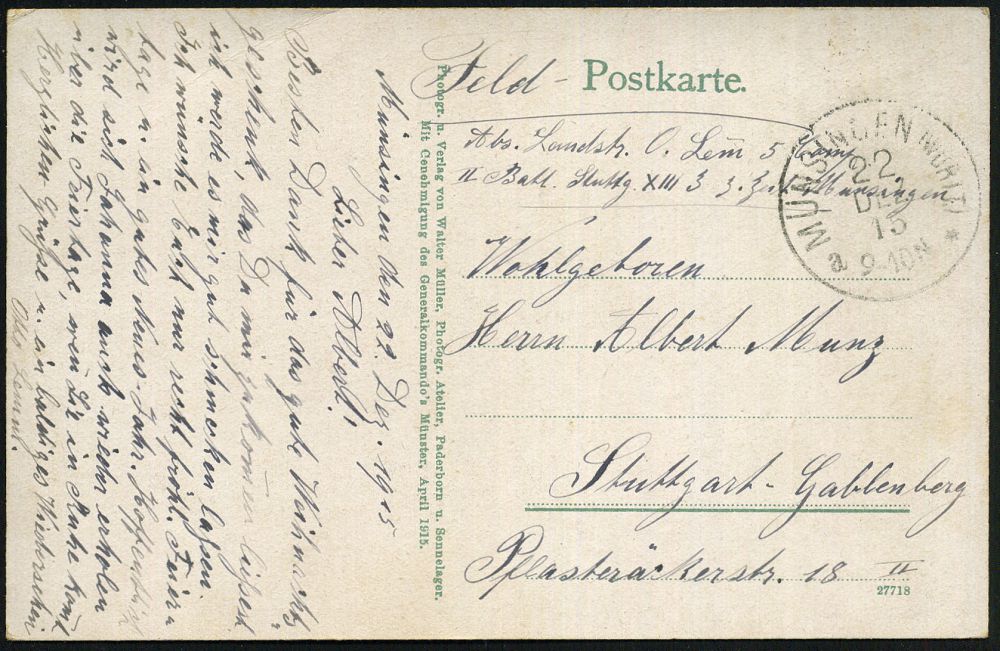 Feld- Postkarte.
Abs. Landstr. O. Lem̅ 5 Comp
II Batl. Stuttg. XIII 3 z. Zt. Münsingen
MÜNSINGEN (WÜRTT)
22.
DEZ
15
9-10N
a
Wohlgeboren
Herrn Albert Munz
Stuttgart-Gablenberg
Pflasteräckerstr. 18 II
27718
Photogr. u. Verlag von Walter Müller, Photogr. Atelier, Paderborn u. Sennelager.
Mit Genehmigung des Generalkommando's Münster, April 1915.
Münsingen den 22. Dez. 1915
Lieber Albert!
Besten Dank für das gute Weihnachts
geschenk, das Du mir zukommen ließest
ich werde es mir gut schmecken lassen.
Ich wünsche Euch nur recht fröhl. Feier
tage u. ein gutes Neues-Jahr. Hoffentlich
wird sich Johanna auch wieder erholen
über die Feiertage, wen Sie in Ruhe komt
Herzlichen Grüße u. ein baldiges Wiedersehen